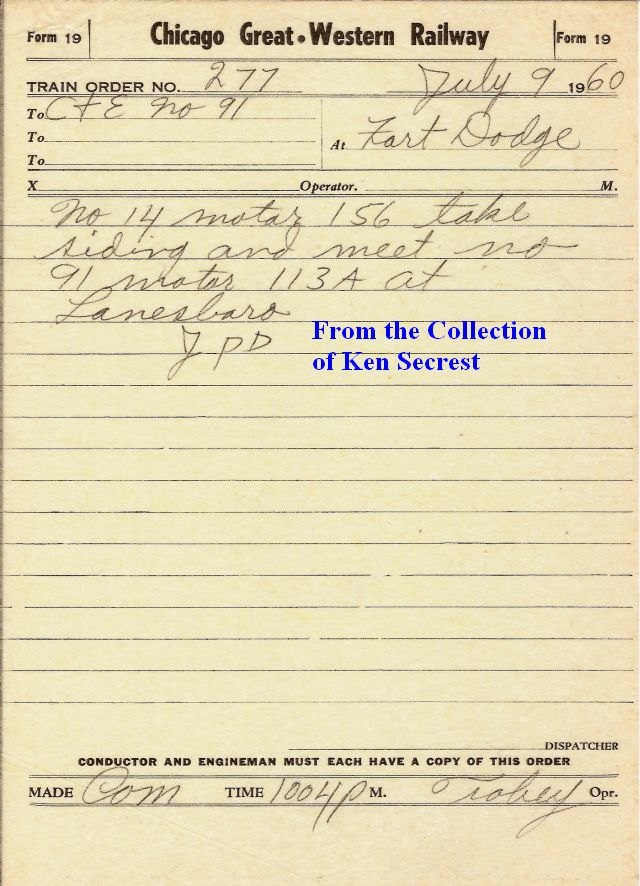 Form 19 Chicago Great Western Railway Form 19
TRAIN ORDER NO. 277 July 9 1960
To C & E No 91
To
To
At Fort Dodge
X Operator. M.
No 14 motor 156 take
siding and meet no
91 motor 113A at
Lanesboro
JPD
From the Collection
of Ken Secrest
DISPATCHER
CONDUCTOR AND ENGINEMAN MUST EACH HAVE A COPY OF THIS ORDER
MADE Com TIME 1004p M. Opr.